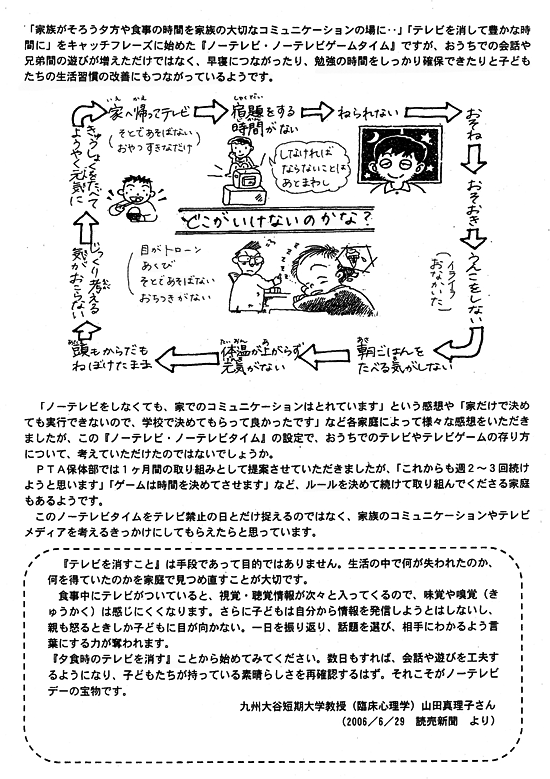 「家族がそろう夕方や食事の時間を家族の大切なコミュニケーションの場に‥」「テレビを消して豊かな時
間に」をキャッチフレーズに始めた『ノーテレビ・ノーテレビゲームタイム』ですが、おうちでの会話や
兄弟間の遊びが増えただけではなく、早寝につながったり、勉強の時間をしっかり確保できたりと子ども
たちの生活習慣の改善にもつながっているようです。
家へ帰ってテレビ
いえ かえ
そとであそばない
おやつすきなだけ
宿題をする
しゅくだい
時間がない
しなければ
ならないことは
あとまわし
ねられない
おそね
おそおき
うんこをしない
イライラ
おなかいた
朝ごはんを
あさ
たべる気がしない
体温が上がらず
たいおん あ
元気がない
頭もからだも
あたま
ねぼけたまま
じっくり考える
気がおこらない
きゅうしょくをたべて
ようやく元気に
どこがいけないのかな?
目がトローン
あくび
そとであそばない
おちつきがない
「ノーテレビをしなくても、家でのコミュニケーションはとれています」という感想や「家だけで決め
ても実行できないので、学校で決めてもらって良かったです」など各家庭によって様々な感想をいただき
ましたが、この『ノーテレビ・ノーテレビタイム』の設定で、おうちでのテレビやテレビゲームの存り方
について、考えていただけたのではないでしょうか。
ＰＴＡ保体部では１ヶ月間の取り組みとして提案させていただきましたが、「これからも週２～３回続け
ようと思います」「ゲームは時間を決めてさせます」など、ルールを決めて続けて取り組んでくださる家庭
もあるようです。
このノーテレビタイムをテレビ禁止の日とだけ捉えるのではなく、家族のコミュニケーションやテレビ
メディアを考えるきっかけにしてもらえたらと思っています。
『テレビを消すこと』は手段であって目的ではありません。生活の中で何が失われたのか、
何を得ていたのかを家庭で見つめ直すことが大切です。
食事中にテレビがついていると、視覚・聴覚情報が次々と入ってくるので、味覚や嗅覚（き
ゅうかく）は感じにくくなります。さらに子どもは自分から情報を発信しようとはしないし、
親も怒るときしか子どもに目が向かない。一日を振り返り、話題を選び、相手にわかるよう言
葉にする力が奪われます。
『夕食時のテレビを消す』ことから始めてみてください。数日もすれば、会話や遊びを工夫す
るようになり、子どもたちが持っている素晴らしさを再確認するはず。それこそがノーテレビ
デーの宝物です。
九州大谷短期大学教授（臨床心理学）山田真理子さん
（2006／6／29 読売新聞 より）